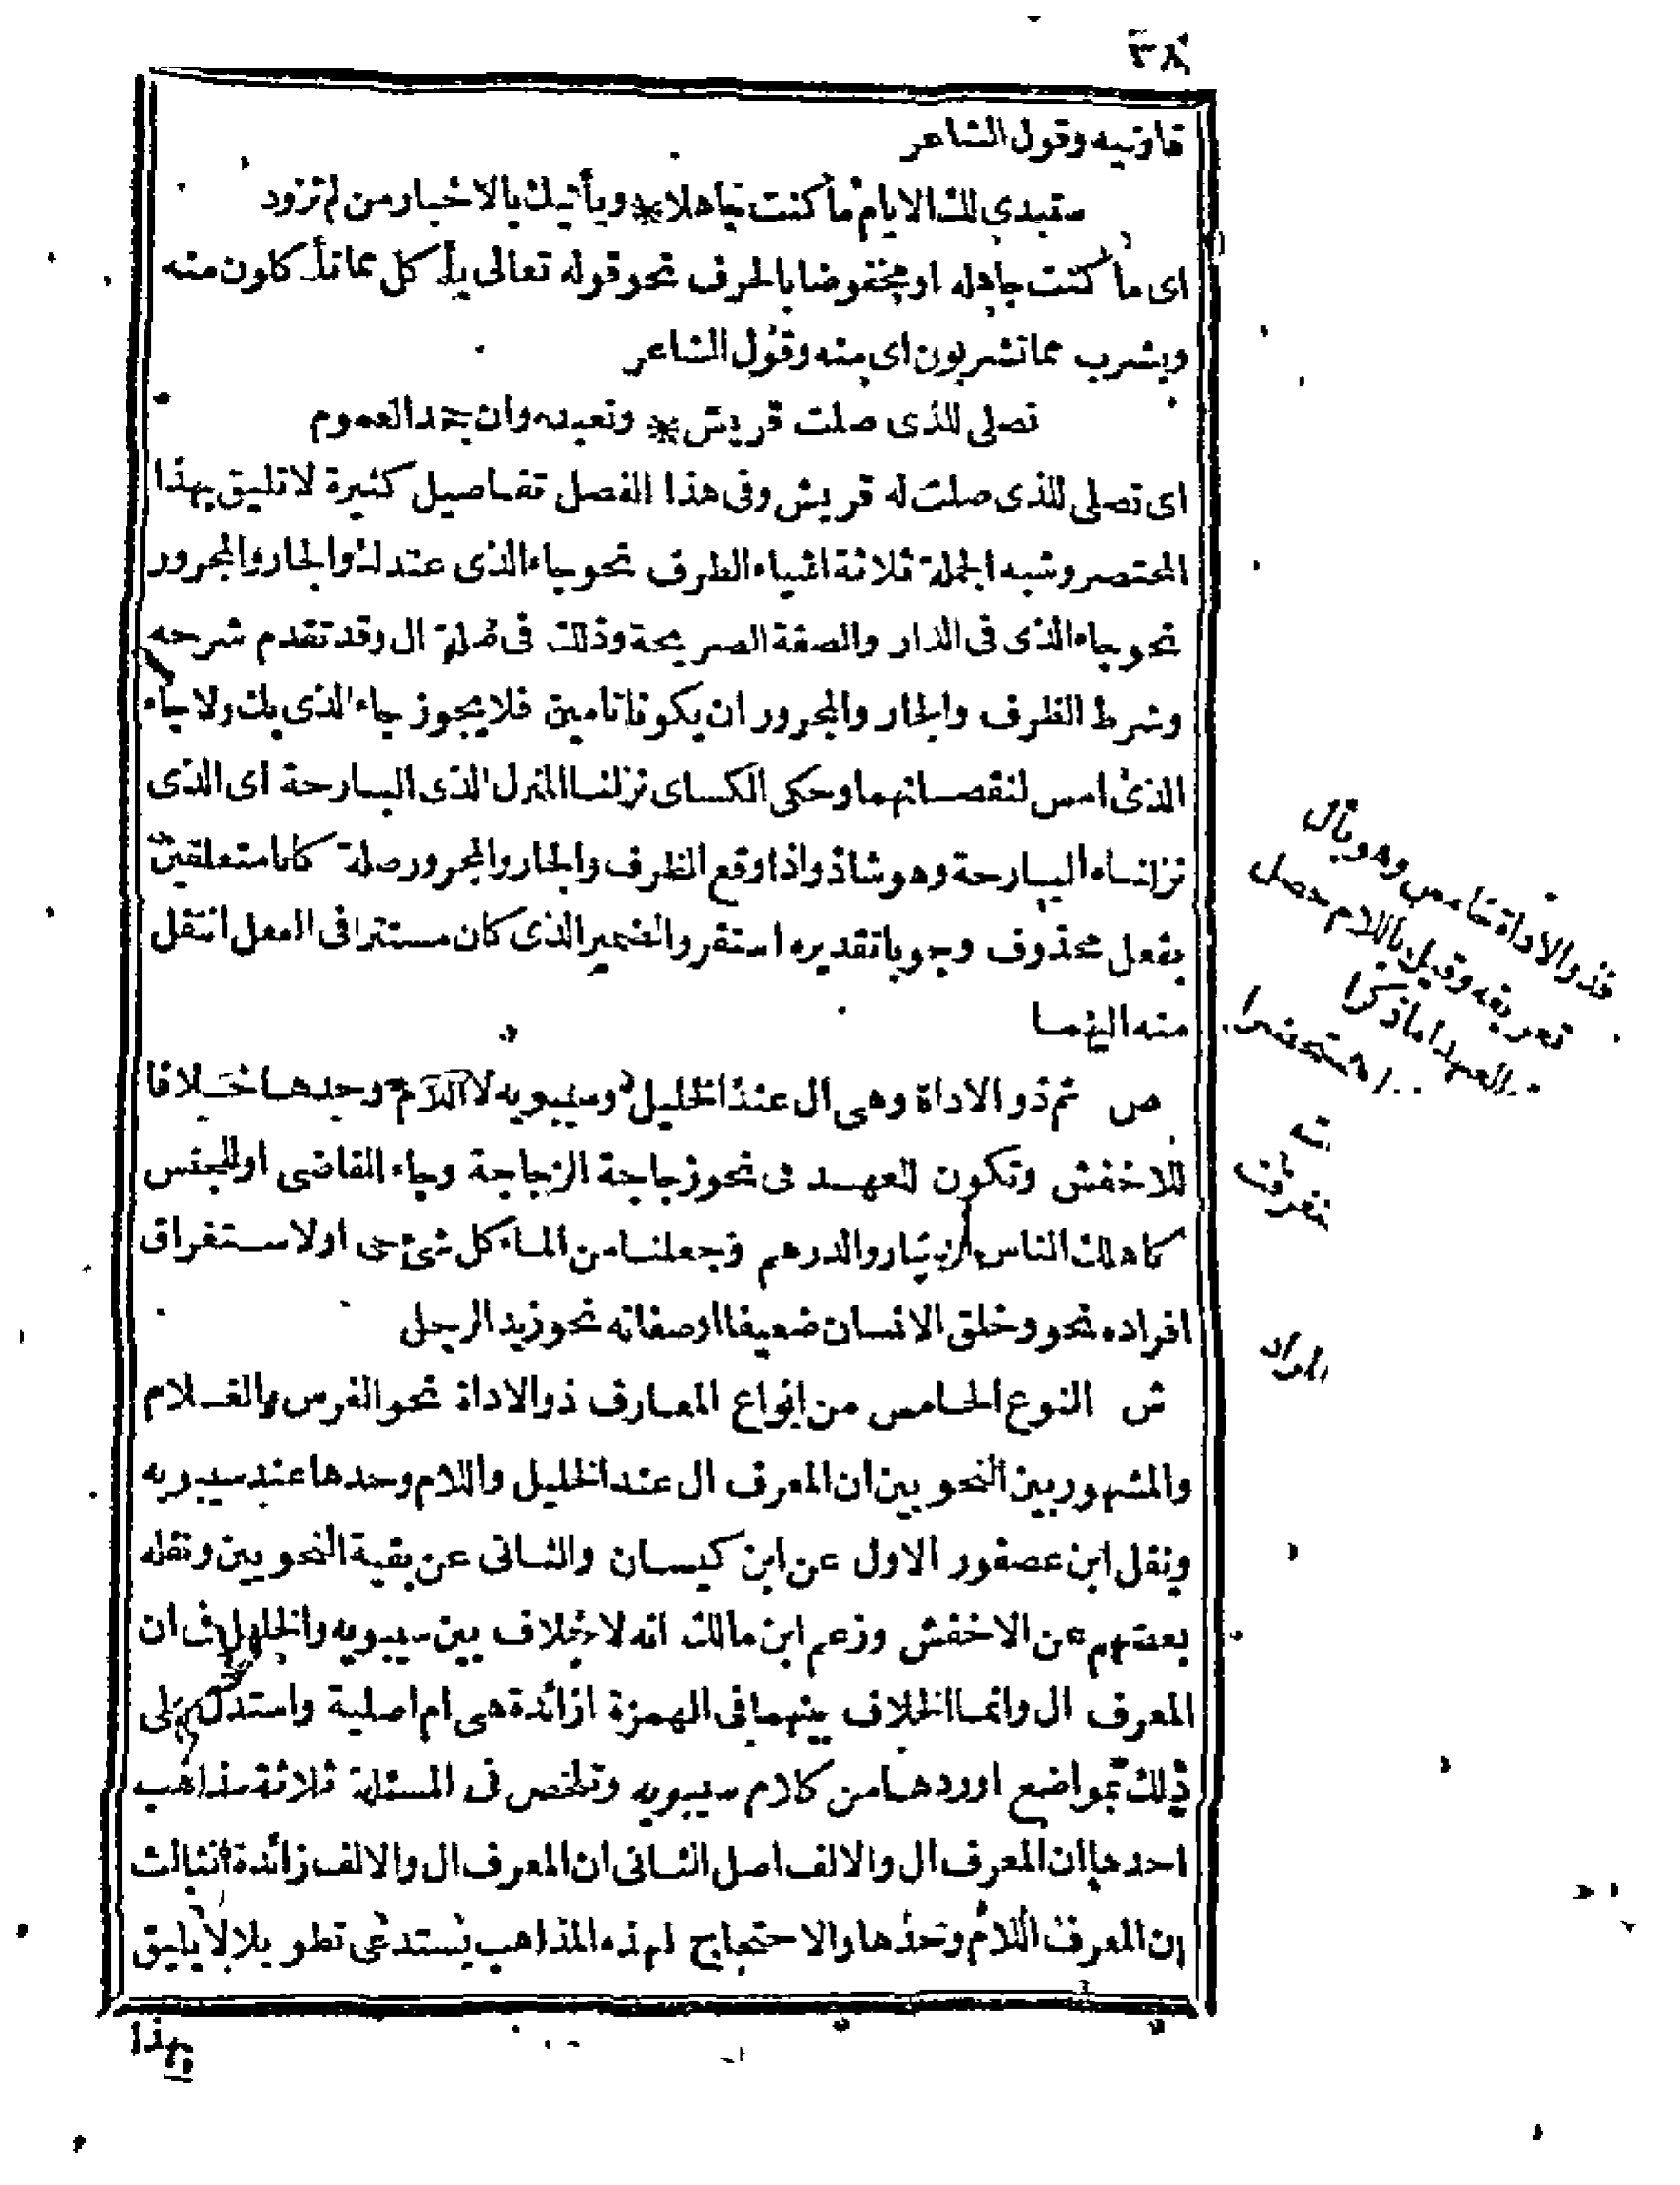 ٣٨
قاضيه وقول الشاعر
ستبدى لك الايام ما كنت جاهلا * ويأتيك بالاخبار من لم تزود
اى ما كنت جاهله او مخفوضا بالحرف نحو قوله تعالى يأكل مما تأكلون منه
ويشرب مما تشربون اى منه وقول الشاعر
نصلى للذى صلت قريش * ونعبده وان جحد العموم
اى نصلى للذى صلت له قريش وفى هذا الفصل تفاصيل كثيرة لا تليق بهذا
المختصر وشبه الجملة ثلاثة اشياء الظرف نحو جاء الذى عندك والجار والمجرور
نحو جاء الذى فى الدار والصفة الصريحة وذلك فى صلة ال وقد تقدم شرحه
وشرط الظرف والجار والمجرور ان يكونا تامين فلا يجوز جاء الذى بك ولا جاء
الذى امس لنقصانهما وحكى الكساى نزلنا المنزل الذى البارحة اى الذى
نزلناه البارحة وهو شاذ واذا وقع الظرف والجار والمجرور صلة كانا متعلقين
بفعل محذوف وجوبا تقديره استقر والضمير الذى كان مستترا فى الفعل انتقل
منه اليهما
ص ثم ذو الاداة وهى ال عند الخليل وسيبويه لا اللام وحدها خلافا
للاخفش وتكون للعهد فى نحو زجاجة الزجاجة وجاء القاضى او للجنس
كاهلك الناس الدينار والدرهم وجعلنا من الماء كل شئ حى او لاستغراق
افراده نحو وخلق الانسان ضعيفا او صفاته نحو زيد الرجل
ش النوع الخامس من انواع المعارف ذو الاداة نحو الفرس والغلام
والمشهور بين النحويين ان المعرف ال عند الخليل واللام وحدها عند سيبويه
ونقل ابن عصفور الاول عن ابن كيسان والثانى عن بقية النحويين ونقله
بعضهم عن الاخفش وزعم ابن مالك انه لا خلاف بين سيبويه والخليل فى ان
المعرف ال وانما الخلاف بينهما فى الهمزة ازائدة هى ام اصلية واستدل على
ذلك بمواضع اوردها من كلام سيبويه وتلخص فى المسئلة ثلاثة مذاهب
احدها ان المعرف ال والالف اصل الثانى ان المعرف ال والالف زائدة الثالث
ان المعرف اللام وحدها والاحتجاج لهذه المذاهب يستدعى تطويلا لا يليق
بهذا
فذو الاداة خامس وهو بأل
تعريفه وقيل باللام حصل
المراد